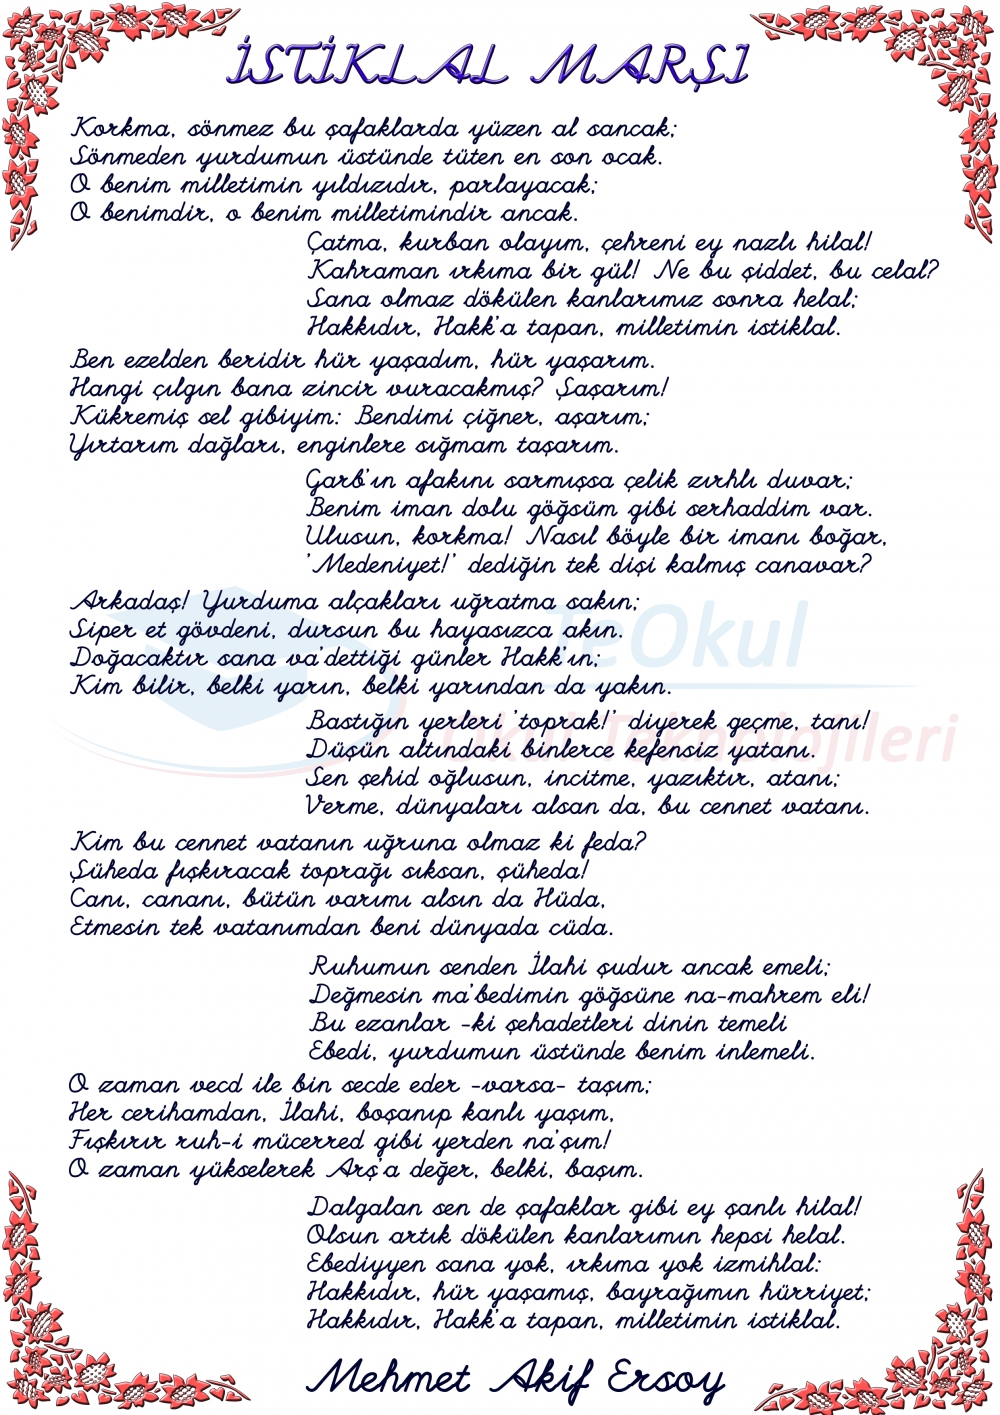 İSTİKLAL MARŞI
Korkma, sönmez bu şafaklarda yüzen al sancak;
Sönmeden yurdumun üstünde tüten en son ocak.
O benim milletimin yıldızıdır, parlayacak;
O benimdir, o benim milletimindir ancak.
Çatma, kurban olayım, çehreni ey nazlı hilal!
Kahraman ırkıma bir gül! Ne bu şiddet, bu celal?
Sana olmaz dökülen kanlarımız sonra helal;
Hakkıdır, Hakk'a tapan, milletimin istiklal.
Ben ezelden beridir hür yaşadım, hür yaşarım.
Hangi çılgın bana zincir vuracakmış? Şaşarım!
Kükremiş sel gibiyim: Bendimi çiğner, aşarım;
Yırtarım dağları, enginlere sığmam taşarım.
Garb'ın afakını sarmışsa çelik zırhlı duvar;
Benim iman dolu göğsüm gibi serhaddim var.
Ulusun, korkma! Nasıl böyle bir imanı boğar,
'Medeniyet!' dediğin tek dişi kalmış canavar?
Arkadaş! Yurduma alçakları uğratma sakın;
Siper et gövdeni, dursun bu hayasızca akın.
Doğacaktır sana va'dettiği günler Hakk'ın;
Kim bilir, belki yarın, belki yarından da yakın.
Bastığın yerleri 'toprak!' diyerek geçme, tanı!
Düşün altındaki binlerce kefensiz yatanı.
Sen şehid oğlusun, incitme, yazıktır, atanı;
Verme, dünyaları alsan da, bu cennet vatanı.
Kim bu cennet vatanın uğruna olmaz ki feda?
Şüheda fışkıracak toprağı sıksan, şüheda!
Canı, cananı, bütün varımı alsın da Hüda,
Etmesin tek vatanımdan beni dünyada cüda.
Ruhumun senden İlahi şudur ancak emeli;
Değmesin ma'bedimin göğsüne na-mahrem eli!
Bu ezanlar -ki şehadetleri dinin temeli
Ebedi, yurdumun üstünde benim inlemeli.
O zaman vecd ile bin secde eder -varsa- taşım;
Her cerihamdan, İlahi, boşanıp kanlı yaşım,
Fışkırır ruh-i mücerred gibi yerden na'şım!
O zaman yükselerek Arş'a değer, belki, başım.
Dalgalan sen de şafaklar gibi ey şanlı hilal!
Olsun artık dökülen kanlarımın hepsi helal.
Ebediyyen sana yok, ırkıma yok izmihlal:
Hakkıdır, hür yaşamış, bayrağımın hürriyet;
Hakkıdır, Hakk'a tapan, milletimin istiklal.
Mehmet Akif Ersoy
TeOkul
Okul Teknolojileri